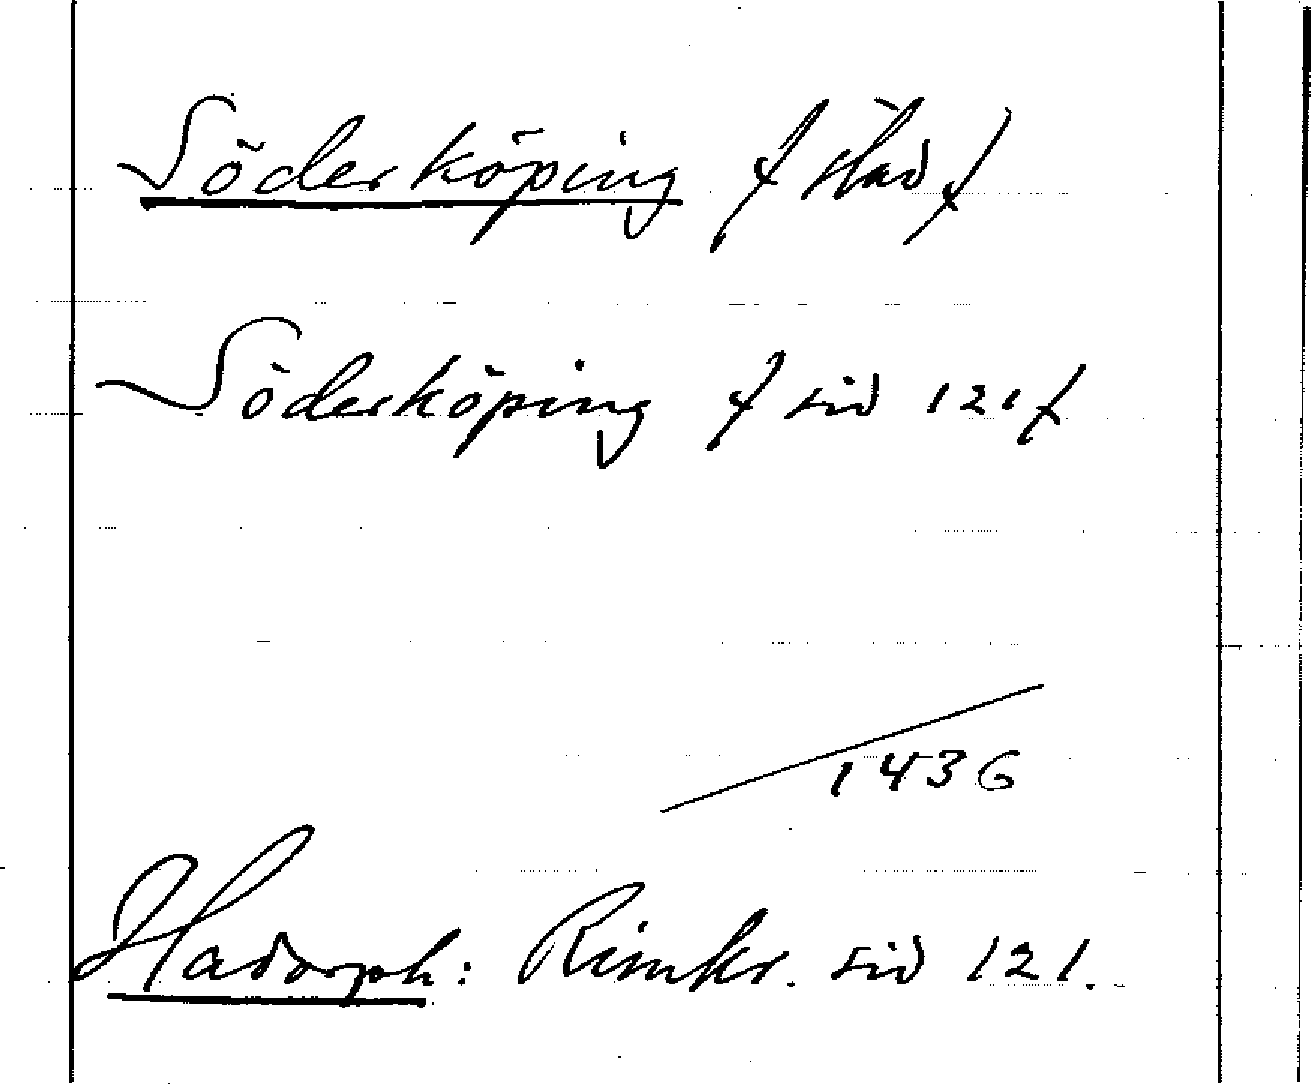 Söderköping /stad/
Söderköping /sid 121/
1436
Hadorph: Rimkr. sid 121.